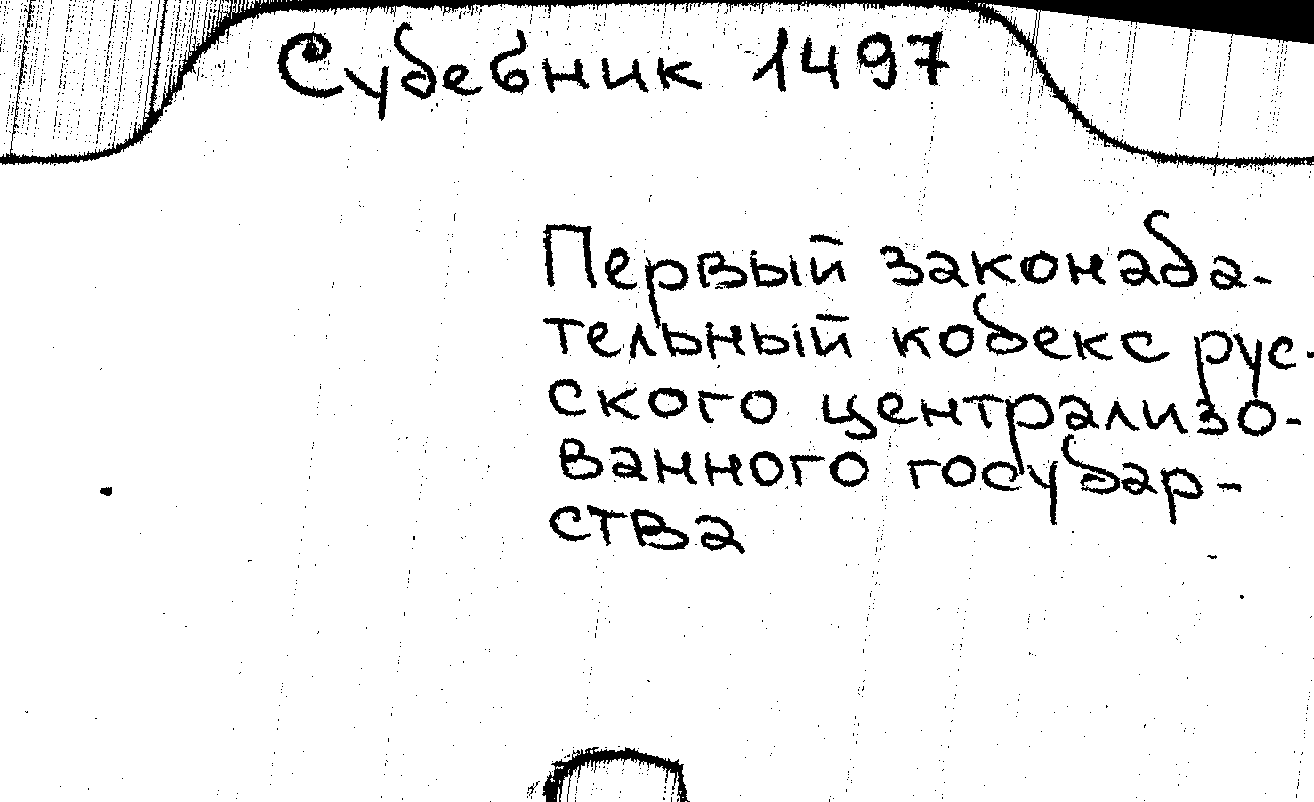 Судебник 1497
Первый законада-
тельный кодекс рус-
ского централизо-
ванного государ-
ства